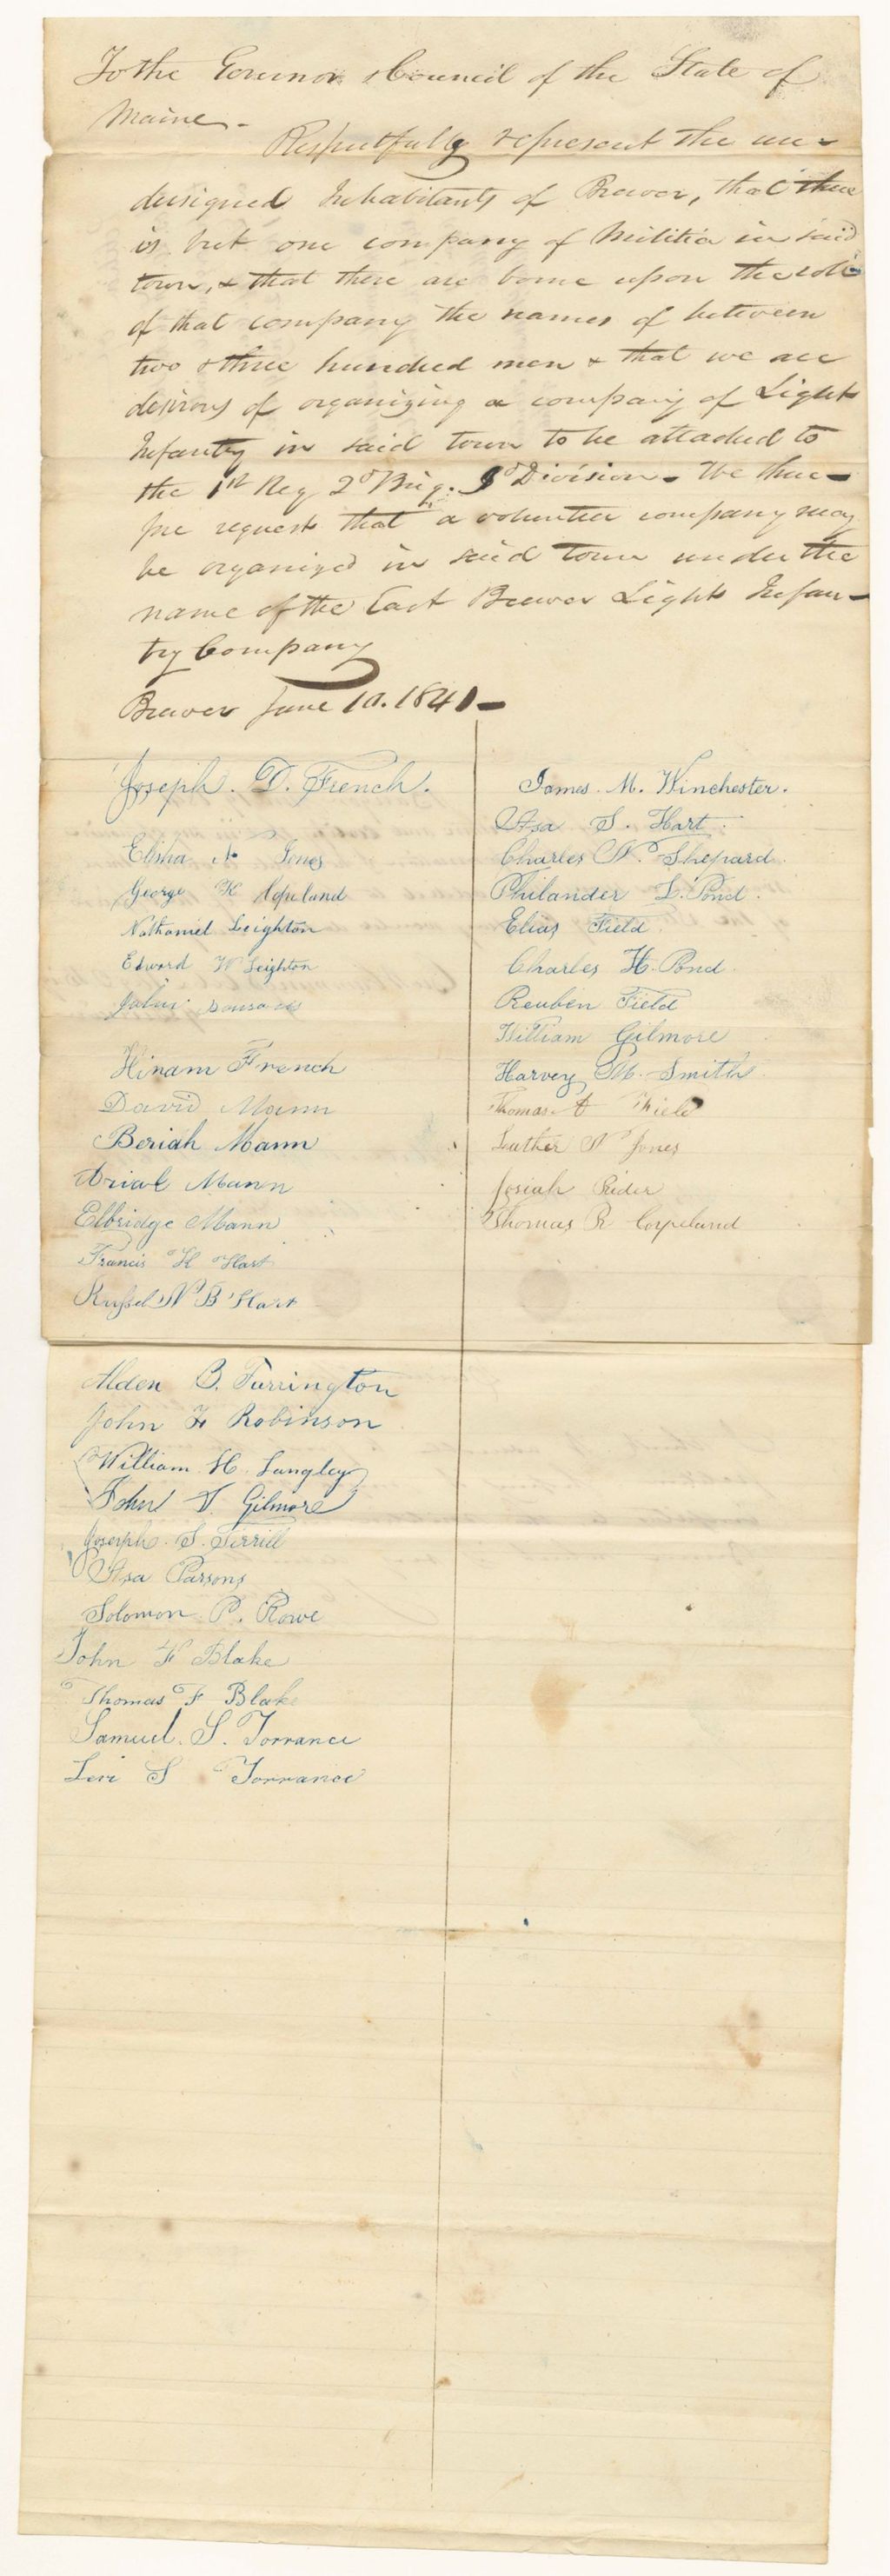 To the Governor & Council of the State of
Maine -
Respectfully represent the un-
dersigned Inhabitants of Brewer, that there
is but one company of Militia in said
town, & that there are borne upon the role
of that company the names of between
two & three hundred men & that we are
desirous of organizing a company of Light
Infantry in said town to be attached to
the 1st Reg 2d Brig. 3d Division - We there-
fore request that a volunteer company may
be organized in said town under the
name of the East Brewer Light Infan-
try Company
Brewer June 10. 1841 -
Joseph. D. French.
Elisha N Jones
George K Copeland
Nathaniel Leighton
Edward W Leighton
John
Hiram French
David Mann
Beriah Mann
Arial Mann
Elbridge Mann
Francis H Hart
Russel N B Hart
James. M. Winchester.
Asa S. Hart.
Charles N. Shepard.
Philander L. Pond.
Elias Field.
Charles H. Pond.
Reuben Field
William Gilmore
Harvey M. Smith
Thomas A Field
Luther N Jones
Josiah Rider
Thomas R Copeland
Alden B. Farrington
John F Robinson
William H. Langley
John T. Gilmore
Joseph. S. Terrill
Asa Parsons
Solomon P. Rowe
John F Blake
Thomas F Blake
Samuel. S. Torrance
Levi S Torrance